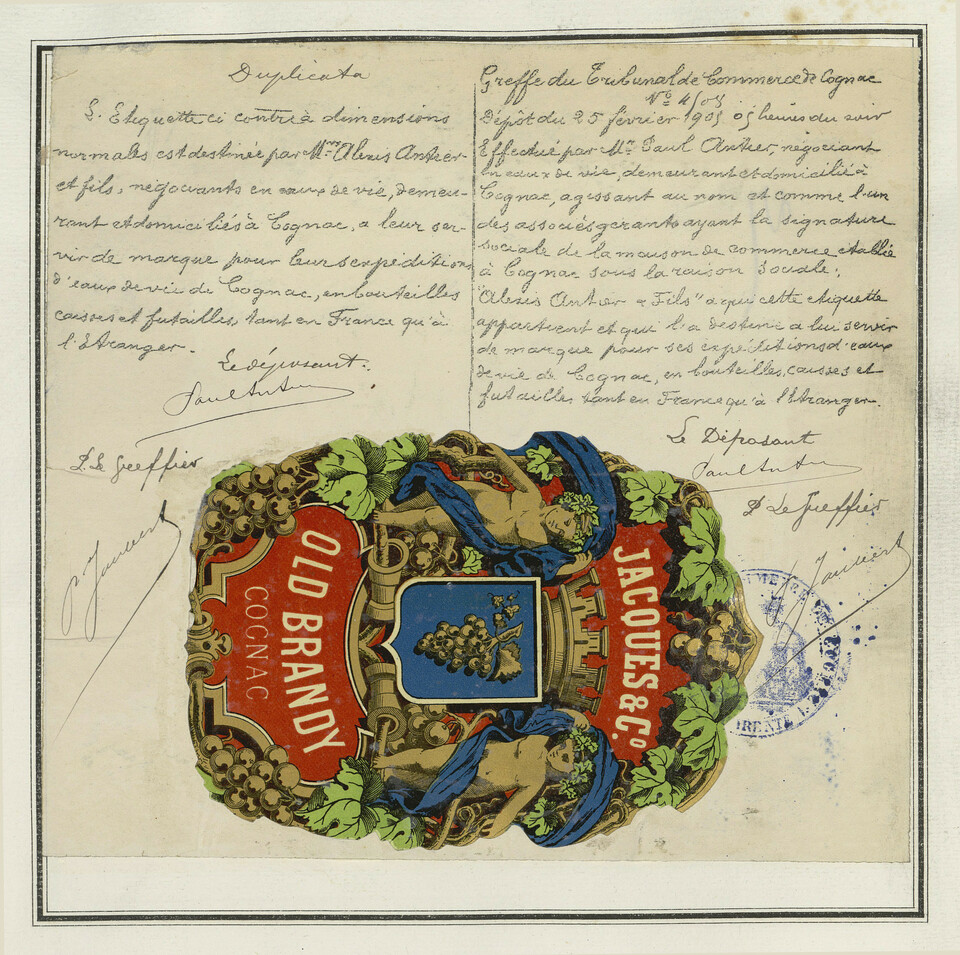 Duplicata
L'Etiquette ci contre à dimensions
normales est destinée par Mrs Alexis Antier
et fils, négociants en eaux de vie, demeu-
rant et domiciliés à Cognac, a leur ser-
vir de marque pour leurs expeditions
d'eaux de vie de Cognac, en bouteilles
caisses et futailles, tant en France qu'à
l'Etranger.
Le déposant.
Paul Antier
P. Le Greffier
P. Jauvert
Greffe du Tribunal de Commerce de Cognac
No 4/05
Dépôt du 25 février 1905 à 5 heures du soir
Effectué par Mr Paul Antier, négociant
en eaux de vie, demeurant et domicilié à
Cognac, agissant au nom et comme l'un
des associés gérants ayant la signature
sociale de la maison de commerce établie
à Cognac sous la raison Sociale:
"Alexis Antier & Fils" a qui cette etiquette
appartient et qui l'a destiné a lui servir
de marque pour ses expéditions d'eaux
de vie de Cognac, en bouteilles, caisses et
futailles tant en France qu'à l'Etranger.
Le Déposant
Paul Antier
P. Le Greffier
P. Jauvert
JACQUES & Co.
OLD BRANDY
COGNAC